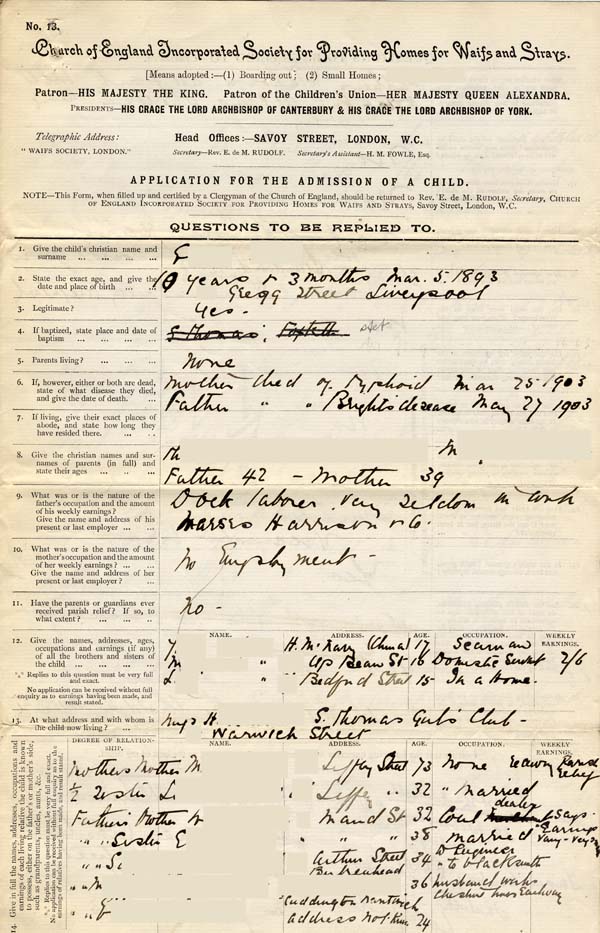 No. 13.
Church of England Incorporated Society for Providing Homes for Waifs and Strays.
[Means adopted:—(1) Boarding out; (2) Small Homes;
Patron—HIS MAJESTY THE KING. Patron of the Children's Union—HER MAJESTY QUEEN ALEXANDRA.
PRESIDENTS—HIS GRACE THE LORD ARCHBISHOP OF CANTERBURY & HIS GRACE THE LORD ARCHBISHOP OF YORK.
Telegraphic Address: Head Offices:—SAVOY STREET, LONDON, W.C.
"WAIFS SOCIETY, LONDON." Secretary—Rev. E. de M. RUDOLF. Secretary's Assistant—H. M. FOWLE, Esq.
APPLICATION FOR THE ADMISSION OF A CHILD.
NOTE—This Form, when filled up and certified by a Clergyman of the Church of England, should be returned to Rev. E. de M. RUDOLF, Secretary, CHURCH
OF ENGLAND INCORPORATED SOCIETY FOR PROVIDING HOMES FOR WAIFS AND STRAYS, Savoy Street, London, W.C.
QUESTIONS TO BE REPLIED TO.
1. Give the child's christian name and
surname
2. State the exact age, and give the
date and place of birth
10 years & 3 months Mar. 5. 1893
Gregg Street Liverpool
3. Legitimate?
Yes.
4. If baptized, state place and date of
baptism
S Thomas,
5. Parents living?
None
6. If, however, either or both are dead,
state of what disease they died,
and give the date of death.
Mother died of Typhoid Mar 25 1903
Father " " Brights disease May 27 1903
7. If living, give their exact places of
abode, and state how long they
have resided there.
8. Give the christian names and sur-
names of parents (in full) and
state their ages
M
Father 42 – Mother 39
9. What was or is the nature of the
father's occupation and the amount
of his weekly earnings?
Give the name and address of his
present or last employer
Dock laborer. Very seldom in work
Harrison & Co.
10. What was or is the nature of the
mother's occupation and the amount
of her weekly earnings?
Give the name and address of her
present or last employer?
No Employment –
11. Have the parents or guardians ever
received parish relief? If so, to
what extent?
no –
12. Give the names, addresses, ages,
occupations and earnings (if any)
of all the brothers and sisters of
the child
*** Replies to this question must be very full
and exact.
No application can be received without full
enquiry as to earnings having been made, and
result stated.
NAME. ADDRESS. AGE. OCCUPATION. WEEKLY EARNINGS.
17 Seaman
M " Up Beau St 16 Domestic Servant 2/6
L. " Bedford Street 15 In a Home.
13. At what address and with whom is
the child now living?
Mrs H. S. Thomas Girls Club –
Warwick Street
14. Give in full the names, addresses, occupations and
earnings of each living relative the child is known
to possess, either on the father's or mother's side,
such as grandparents, uncles, aunts, &c.
*** Replies to this question must be very full and exact.
No application can be received without full enquiry as to the
earnings of relatives having been made, and result stated.
DEGREE OF RELATION-
SHIP. NAME. ADDRESS. AGE. OCCUPATION. WEEKLY EARNINGS.
Mothers Mother M Liffey Street 73 None receiving Parish relief
½ Sister L. " Liffey " 32 " married
Father's Brother W Maud St 32 Coal dealer says Earnings vary
" " Sister E " " 38 married
" " S. Arthur Street 34 " to blacksmith
Birkenhead
" " M 36 husband works
Cheshire lines Railway
" " Cuddington Nantwich
address not known 24